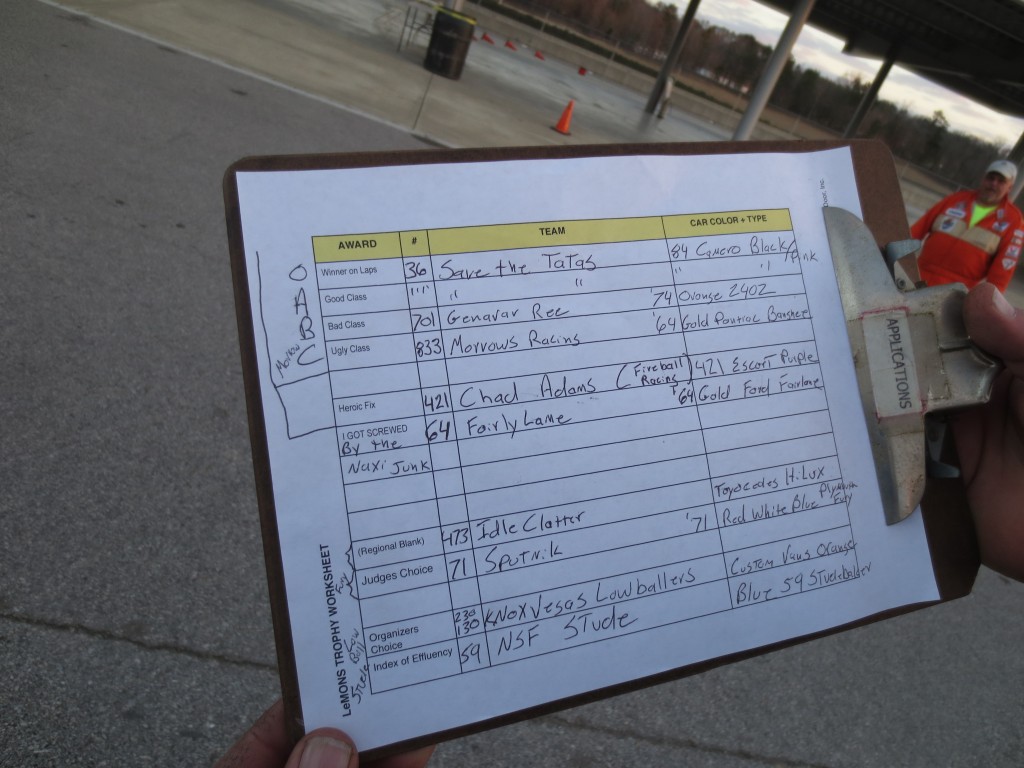 AWARD # TEAM CAR COLOR + TYPE
Winner on Laps 36 Save the TaTas 84 Camero Black/Pink
Good Class " " " " " " "
Bad Class 701 Genavar Ree '74 Orange 240Z
Ugly Class 833 Morrows Racing '64 Gold Pontiac Banshee
Heroic Fix 421 Chad Adams (Fireball Racing) 421 Escort Purple
I GOT SCREWED 64 Fairly Lame '64 Gold Ford Fairlane
By the
Naxi Junk
(Regional Blank) 473 Idle Clatter Toyocedes Hi-Lux
Judges Choice 71 Sputnik '71 Red White Blue Plymouth Fury
Organizers Choice 230 130 KNoxVegas Lowballers Custom Vans Orange
Index of Effluency 59 NSF Stude Blue 59 Studebaker
O
A
B
C
LeMONS TROPHY WORKSHEET
APPLICATIONS